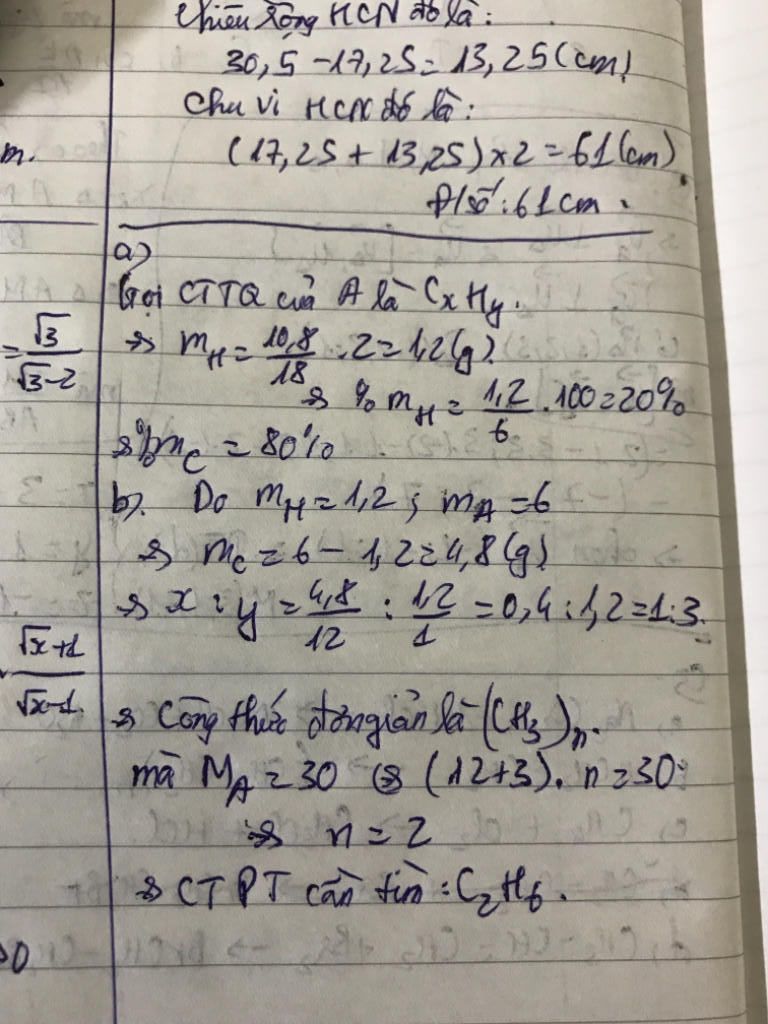 Chiều rộng HCN đó là:
30,5 - 17,25 = 13,25 (cm)
Chu vi HCN đó là:
(17,25 + 13,25) x 2 = 61 (cm)
m.
Đ/số: 61 cm.
a)
Gọi CTTQ của A là CxHy.
= √3 / (√3 - 2)
=> mH = 10,8/18 . 2 = 1,2 (g)
=> %mH = 1,2/6 . 100 = 20%
=> %mC = 80%
b). Do mH = 1,2 ; mA = 6
=> mC = 6 - 1,2 = 4,8 (g)
=> x : y = 4,8/12 : 1,2/1 = 0,4 : 1,2 = 1 : 3.
. (√x + 1) / (√x - 1)
=> Công thức đơn giản là (CH3)n.
mà MA = 30 <=> (12+3). n = 30
=> n = 2
=> CTPT cần tìm : C2H6.
>0